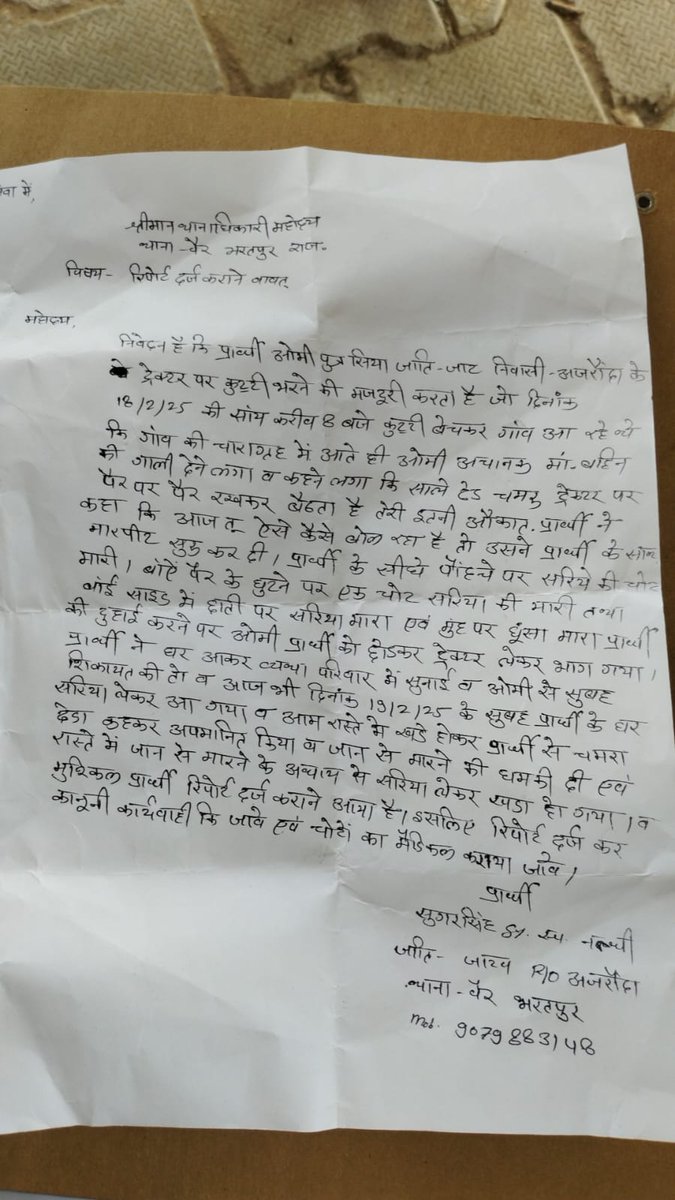 सेवा में,
श्रीमान थानाधिकारी महोदय
थाना - वैर भरतपुर राज.
विषय - रिपोर्ट दर्ज कराने बावत्
महोदय,
निवेदन है कि प्रार्थी ओमी पुत्र सिया जाति - जाट निवासी - अजरौंदा के
ट्रेक्टर पर कुट्टी भरने की मजदूरी करता है जो दिनांक
18/2/25 की सांय करीव 8 बजे कुट्टी बेचकर गांव आ रहे थे
कि गांव की चारागाह में आते ही ओमी अचानक मां-बहिन
की गाली देने लगा व कहने लगा कि साले ढेड चमट्ट ट्रेक्टर पर
पैर पर पैर रखकर बैठता है तेरी इतनी औकात्. प्रार्थी ने
कहा कि आज तू ऐसे कैसे बोल रहा है तो उसने प्रार्थी के साथ
मारपीट सुरू कर दी। प्रार्थी के सीधे पौंहचे पर सरिये की चोट
मारी। बांऐ पैर के घुटने पर एक चोट सरिया की मारी तथा
बांई साइड में छाती पर सरिया मारा एवं मुंह पर घूंसा मारा प्रार्थी
की दुहाई करने पर ओमी प्रार्थी को छोडकर ट्रेक्टर लेकर भाग गया।
प्रार्थी ने घर आकर व्यथा परिवार में सुनाई व ओमी से सुबह
शिकायत की तो व आज भी दिनांक 19/2/25 के सुबह प्रार्थी के घर
सरिया लेकर आ गया व आम रास्ते में खडे होकर प्रार्थी से चमरा
ढेडा कहकर अपमानित किया व जान से मारने की धमकी दी एवं
रास्ते में जान से मारने के से सरिया लेकर खडा हो गया। व
मुश्किल प्रार्थी रिपोर्ट दर्ज कराने आया है। इसलिए रिपोर्ट दर्ज कर
कानूनी कार्यवाही कि जावे एवं चोटों का मैडिकल कराया जावे।
प्रार्थी
सुगरसिंह S/. स्व. नत्थी
जाति - जाटव R/O अजरौंदा
थाना - वैर भरतपुर
Mob. 9079883148